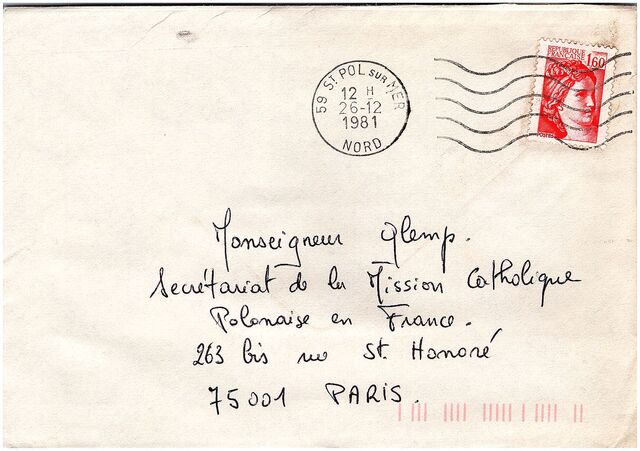 59 ST POL SUR MER
12 H
26-12
1981
NORD
REPUBLIQUE
FRANCAISE
1,60
POSTES
Monseigneur Glemp.
Secrétariat de la Mission Catholique
Polonaise en France.
263 bis rue St. Honoré
75001 PARIS.